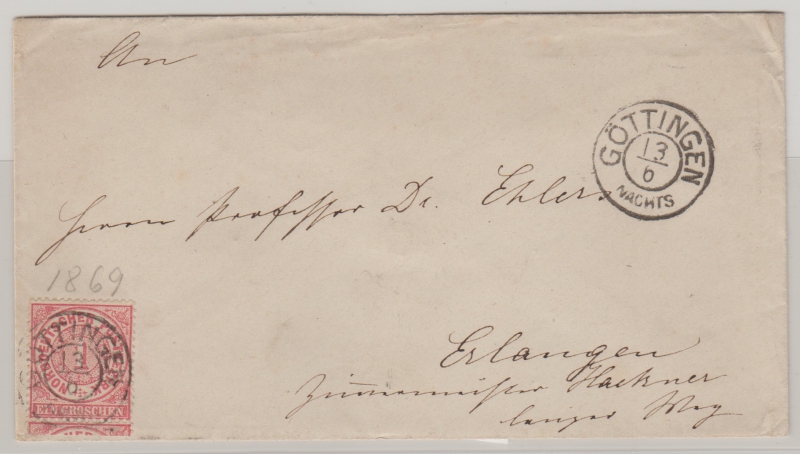 An
GÖTTINGEN
13
6
NACHTS
Herrn Professor Dr. Ehlers
1869
NORDDEUTSCHER
1
EIN GROSCHEN
Erlangen
Zimmermeister Hackner
langer Weg